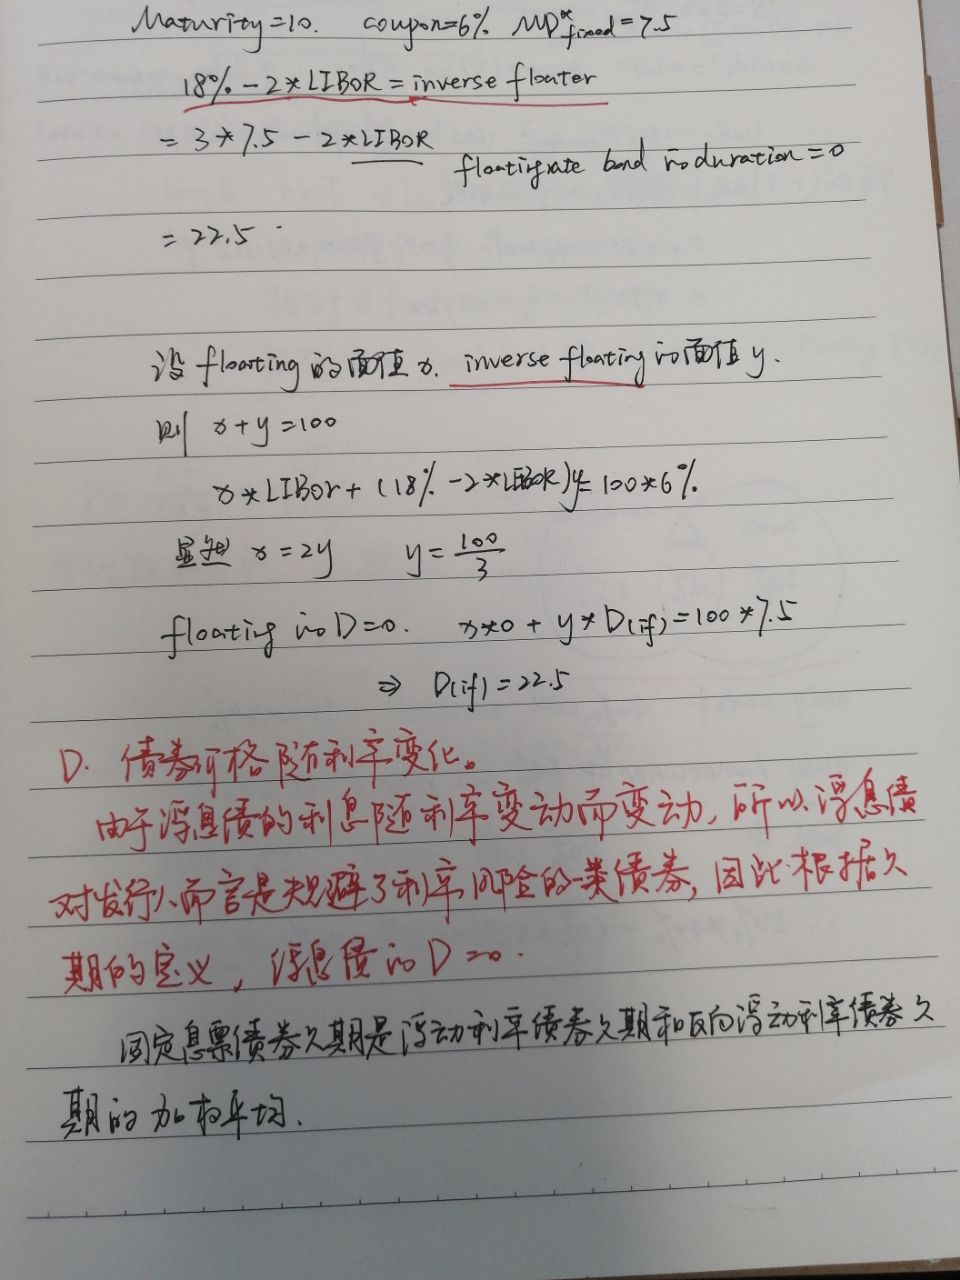 Maturity=10. coupon=6% MD*fixed=7.5
18% - 2*LIBOR = inverse floater
= 3*7.5 - 2*LIBOR
floating rate bond 的 duration = 0
= 22.5
设 floating 的面值 x. inverse floating 的面值 y.
则 x+y=100
x*LIBOR + (18% - 2*LIBOR)y = 100*6%
显然 x=2y y=100/3
floating 的 D=0. x*0 + y*D(if) = 100*7.5
⇒ D(if) = 22.5
D. 债券价格随利率变化。
由于浮息债的利息随利率变动而变动, 所以浮息债
对发行人而言是规避了利率风险的一类债券, 因此根据久
期的定义, 浮息债的 D=0.
固定息票债券久期是浮动利率债券久期和反向浮动利率债券久
期的加权平均.